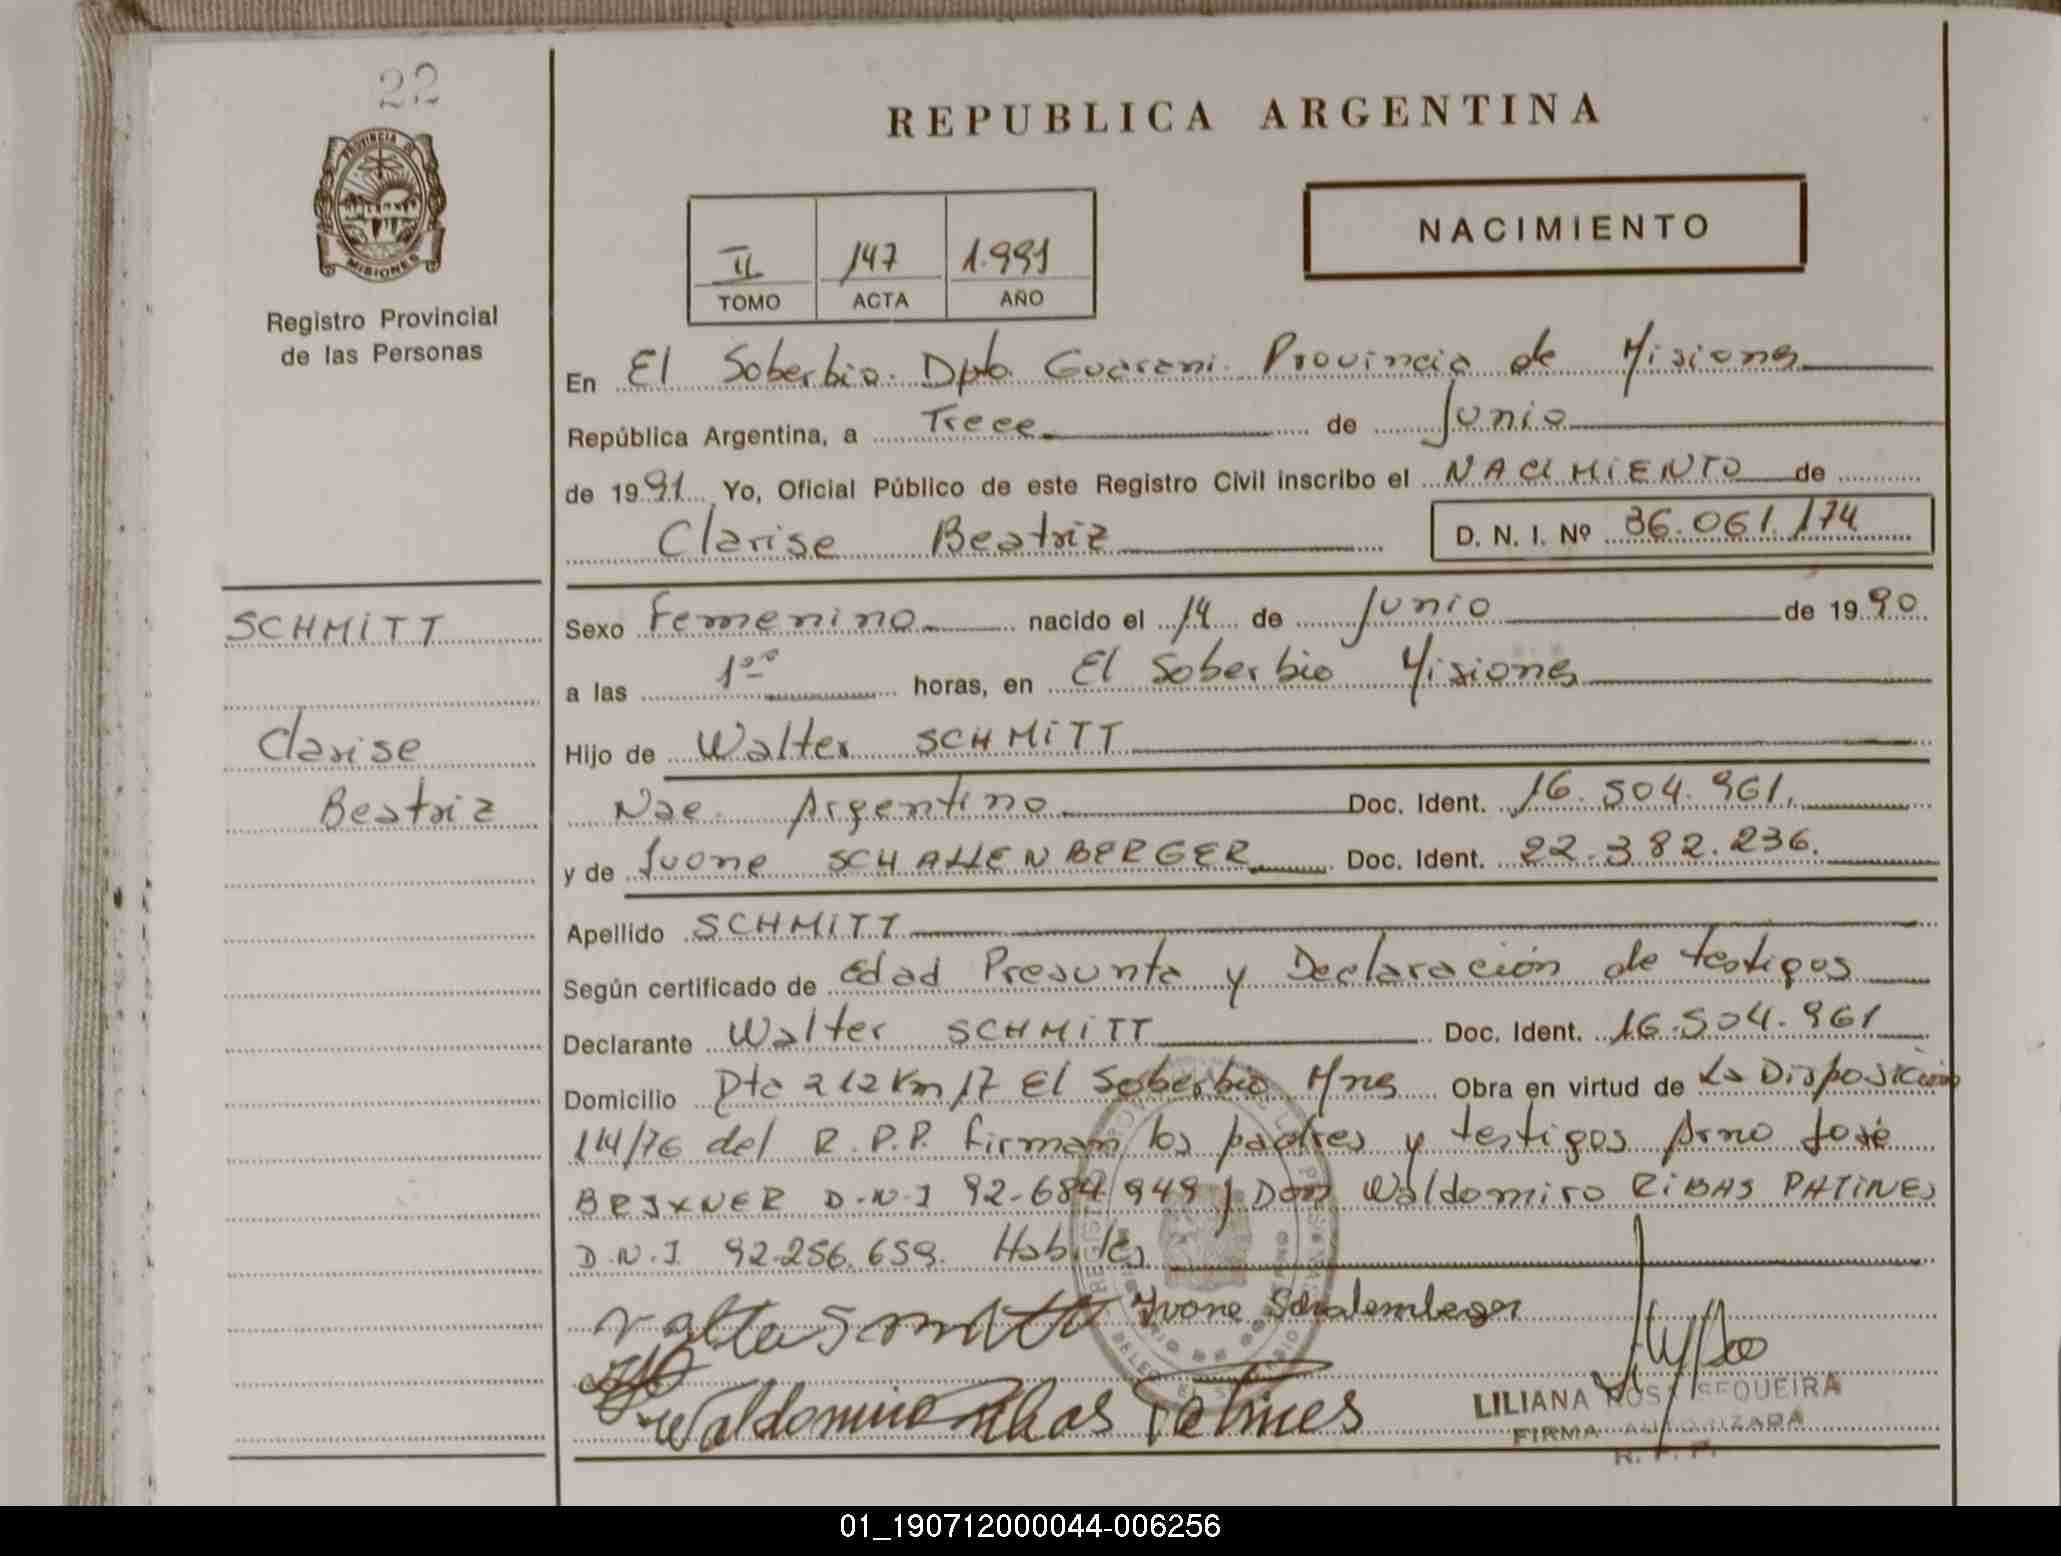 22
PROVINCIA DE
MISIONES
Registro Provincial
de las Personas
SCHMITT
Clarise
Beatriz
REPUBLICA ARGENTINA
NACIMIENTO
II 147 1.991
TOMO ACTA AÑO
En El Soberbio. Dpto. Guarani. Provincia de Misiones
República Argentina, a Trece de Junio
de 1991 Yo, Oficial Público de este Registro Civil inscribo el NACIMIENTO de
Clarise Beatriz D. N. I. Nº 36.061.174
Sexo Femenino nacido el 14 de Junio de 1990
a las 1°° horas, en El Soberbio Misiones
Hijo de Walter SCHMITT
Nac. Argentino Doc. Ident. 16.504.961.
y de Ivone SCHALLENBERGER Doc. Ident. 22.382.236.
Apellido SCHMITT
Según certificado de Edad Presunta y Declaración de testigos
Declarante Walter SCHMITT Doc. Ident. 16.504.961
Domicilio Pto 212 Km 17 El Soberbio Mnes Obra en virtud de La Disposición
114/76 del R.P.P. firman los padres y testigos Arno José
BRIXNER D.N.I 92.684.949 y Don Waldomiro RIBAS PATINES
D.N.I. 92.256.659. Habiles
Ivone Schalemberger
Waldomiro Ribas Patines
LILIANA ROSA SEQUEIRA
FIRMA AUTORIZADA
R. P. P.
01_190712000044-006256